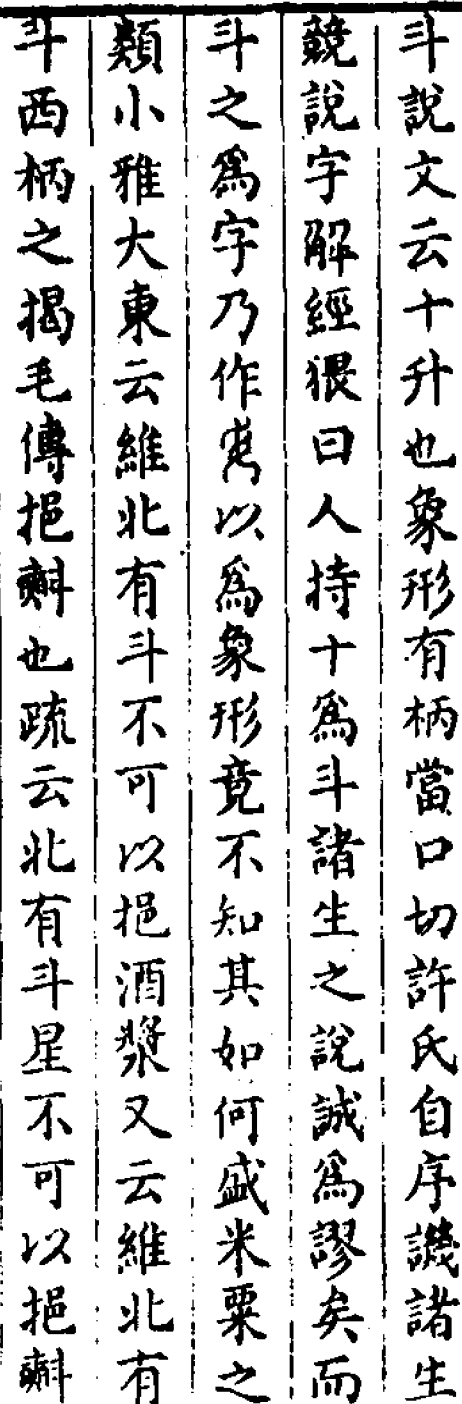 斗說文云十升也象形有柄當口切許氏自序譏諸生
競說字解經猥曰人持十為斗諸生之說誠為謬矣而
斗之為字乃作以為象形竟不知其如何盛米粟之
類小雅大東云維北有斗不可以挹酒漿又云維北有
斗西柄之揭毛傳挹㪺也疏云北有斗星不可以挹㪺